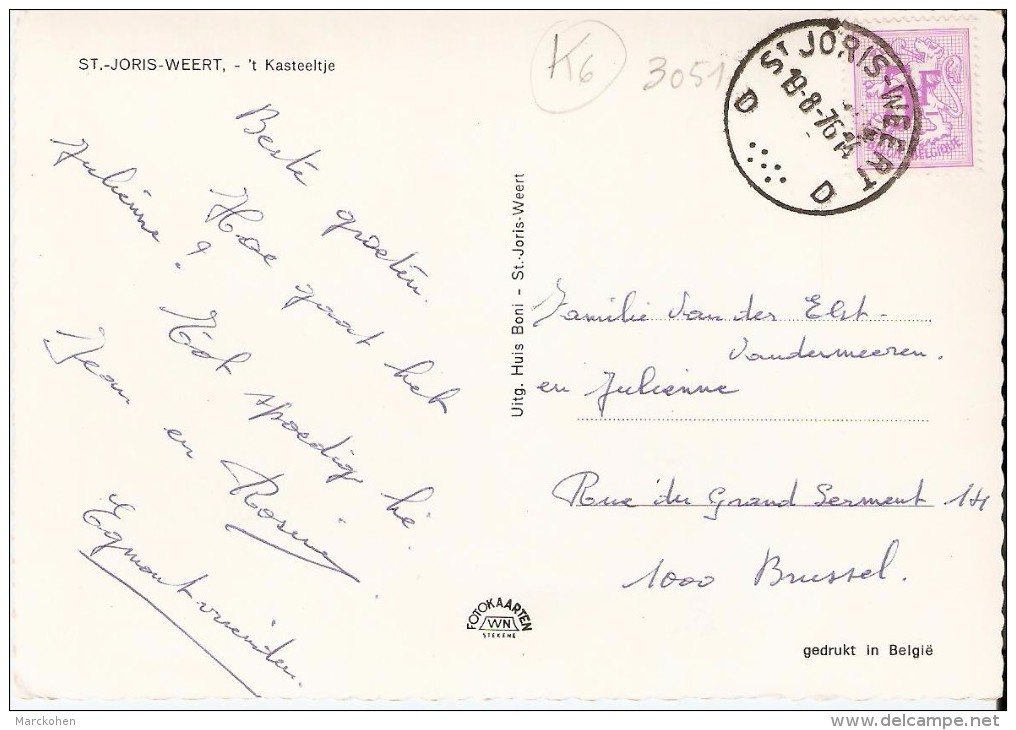 ST.-JORIS-WEERT, - 't Kasteeltje
K6
3051
ST JORIS-WEERT
19-8-76 14
D D
BELGIE-BELGIQUE
Beste groeten.
Hoe gaat het
Julienne?
Tot spoedig hé.
Jean en Rosine.
Egmontvrienden.
Uitg. Huis Boni - St.-Joris-Weert
Familie Van der Elst-
Vandermeeren.
en Julienne
Rue du Grand Serment 14
1000 Brussel.
FOTOKAARTEN
WN
STEKENE
gedrukt in België
Marckohen
delcampe.net